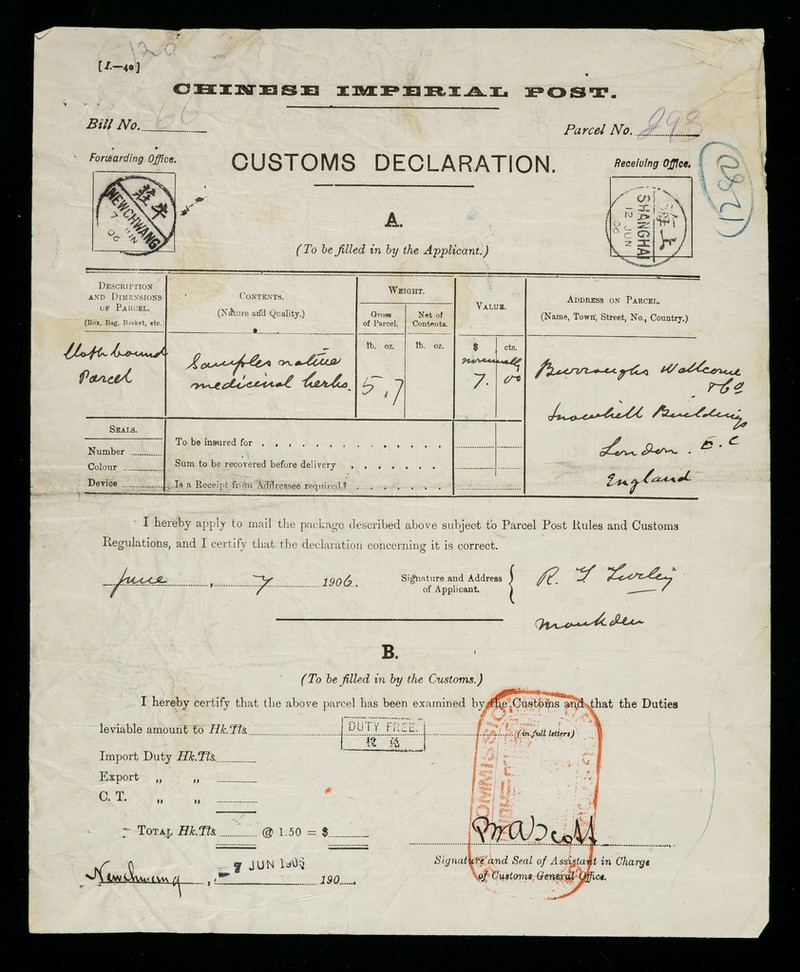 126
[I.—40]
CHINESE IMPERIAL POST.
Bill No. 66
Parcel No. 293
(2821)
Forwarding Office.
CUSTOMS DECLARATION.
Receiving Office.
牛莊
NEWCHWANG
7 JUN 06
上海
SHANGHAI
12 JUN 06
A.
(To be filled in by the Applicant.)
DESCRIPTION AND DIMENSIONS OF PARCEL.
(Box, Bag, Basket, etc.)
CONTENTS.
(Nature and Quality.)
WEIGHT.
Gross of Parcel.
Net of Contents.
VALUE.
ADDRESS ON PARCEL.
(Name, Town, Street, No., Country.)
lb. oz.
lb. oz.
$ cts.
Cloth bound
Parcel
Samples native
medicinal herbs.
5.7
nominally
7. 00
Burroughs Wellcome
& Co
Snowhill Buildings
London. E.C
England
SEALS.
Number
Colour
Device
To be insured for
Sum to be recovered before delivery
Is a Receipt from Addressee required?
I hereby apply to mail the package described above subject to Parcel Post Rules and Customs
Regulations, and I certify that the declaration concerning it is correct.
June, 7 1906.
Signature and Address of Applicant.
R. T Turley
Moukden
B.
(To be filled in by the Customs.)
I hereby certify that the above parcel has been examined by the Customs and that the Duties
leviable amount to Hk.Tls.
DUTY FREE.
(in full letters)
Import Duty Hk.Tls.
Export „ „
C. T. „ „
TOTAL Hk.Tls. @ 1.50 = $
Signature and Seal of Assistant in Charge
of Customs, General Office.
Newchwang, 7 JUN 1906 190